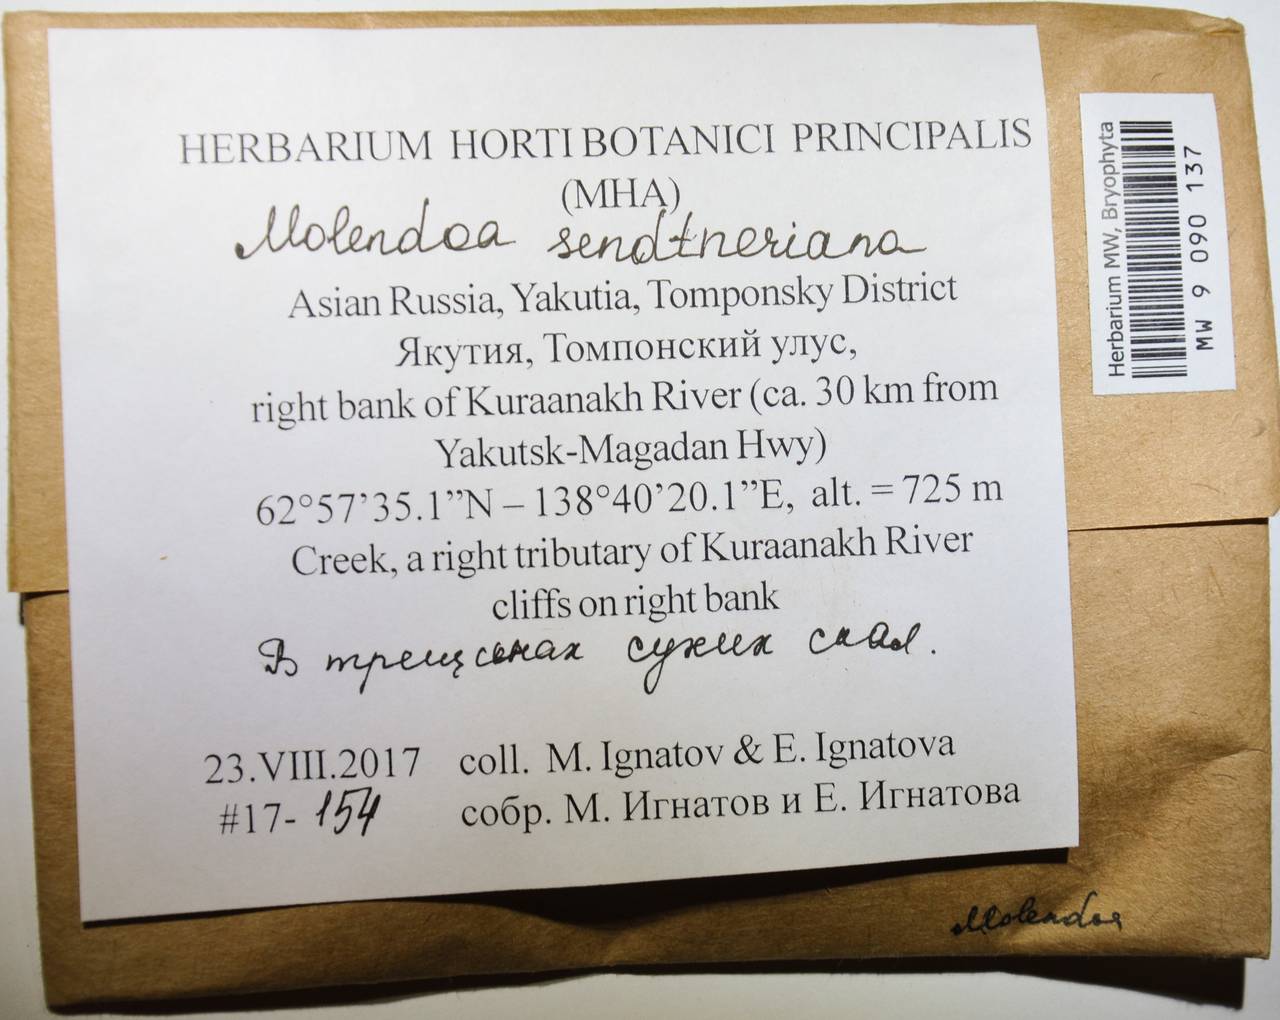 HERBARIUM HORTI BOTANICI PRINCIPALIS
(MHA)
Molendoa sendtneriana
Asian Russia, Yakutia, Tomponsky District
Якутия, Томпонский улус,
right bank of Kuraanakh River (ca. 30 km from
Yakutsk-Magadan Hwy)
62°57’35.1”N – 138°40’20.1”E, alt. = 725 m
Creek, a right tributary of Kuraanakh River
cliffs on right bank
В трещинах сухих скал.
23.VIII.2017 coll. M. Ignatov & E. Ignatova
#17-154 собр. М. Игнатов и Е. Игнатова
Herbarium MW, Bryophyta
MW 9 090 137
Molendoa